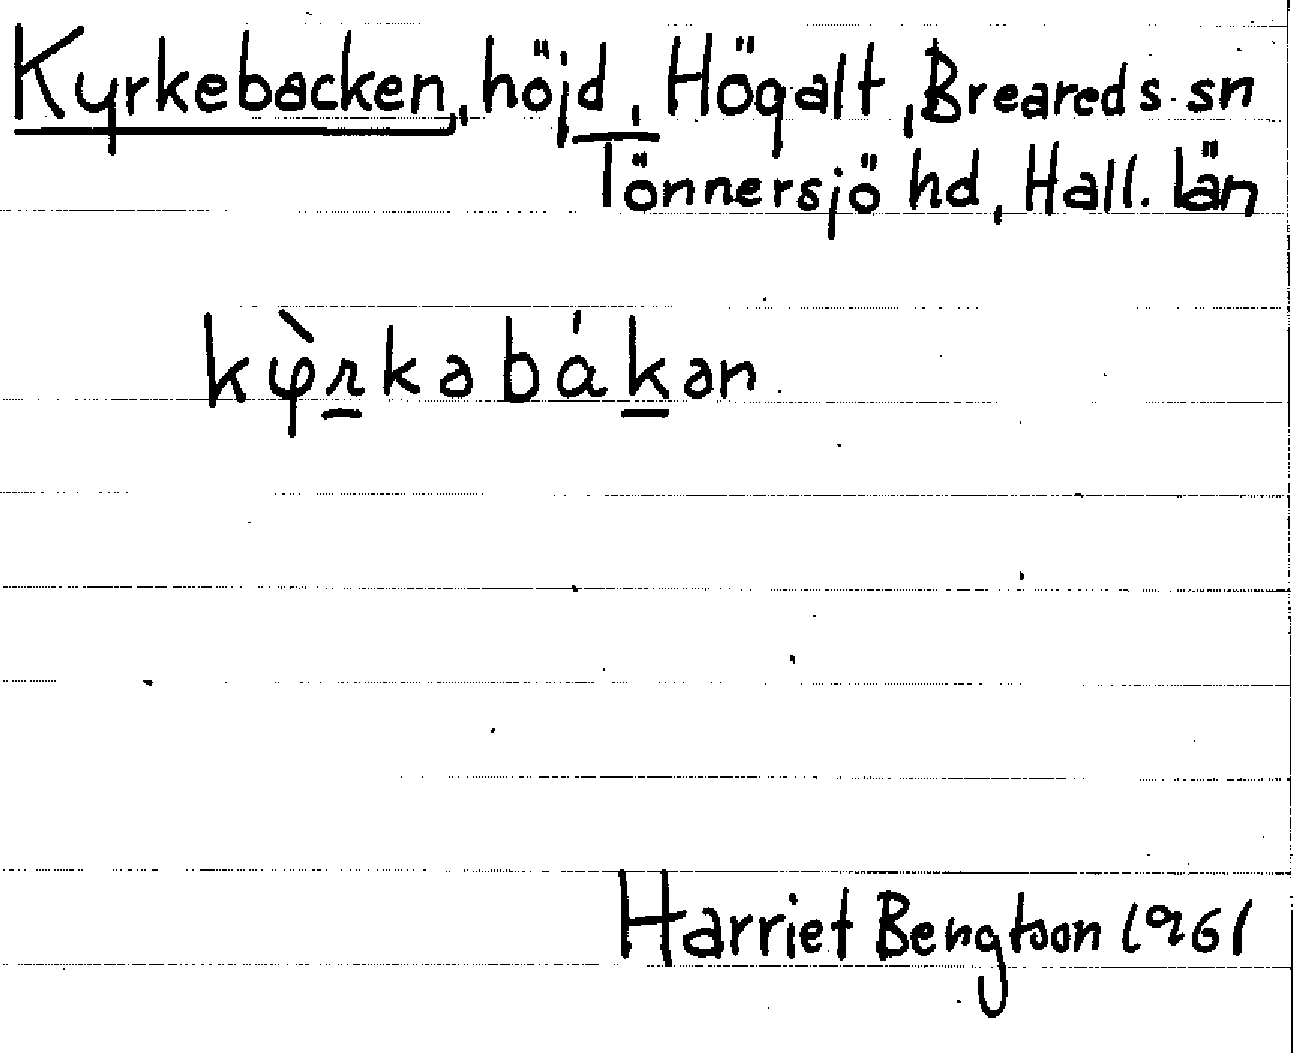 Kyrkebacken, höjd, Högalt, Breareds sn
Tönnersjö hd, Hall. län
kφ̀r̲kəbák̲ən
Harriet Bengtson 1961